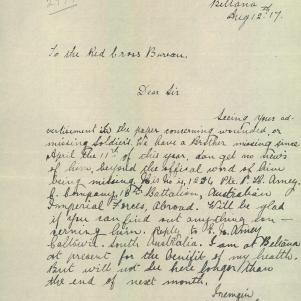 Beltana
Aug 12th 17.
To the Red Cross Bureau.
Dear Sir
Seeing your ad-
vertisement in the paper concerning wounded, or
missing Soldiers. We have a Brother missing since
April the 11th of this year, can get no news
of him, beyond the offical word of him
being missing,
Pte P. H.
Company, 16th Battalion, Australian
Imperial Forces, Abroad. Will be glad
if you can find out anything con-
cerning him. Reply to
South Australia. I am at Beltana
at present for the benifit of my health.
But will not be here longer than
the end of next month.
I remain